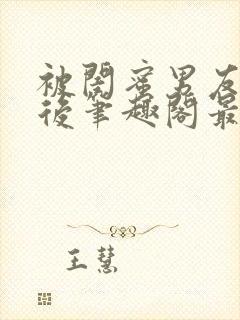 被閣蜜男友
後筆趣閣最
王慧